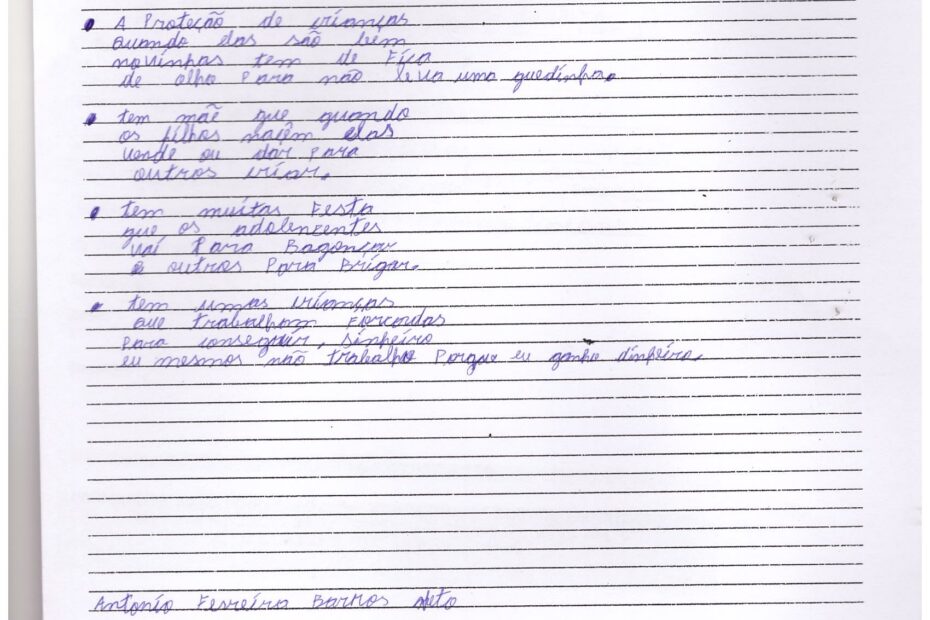 • A Proteção de crianças
quando elas são bem
novinhas tem de Fica
de olho Para não leva uma quedinha.
• tem mãe que quando
os filhos naçem elas
vende ou dar Para
outros criar.
• tem muitas Festa
que os adolencentes
vai Para Bagonçar
e outros Para Brigar.
• tem umas crianças
que trabalham Forcadas
Para conseguir, dinheiro
eu mesmos não trabalho Porque eu ganho dinheiro.
Antonio Ferreira Barros Neto